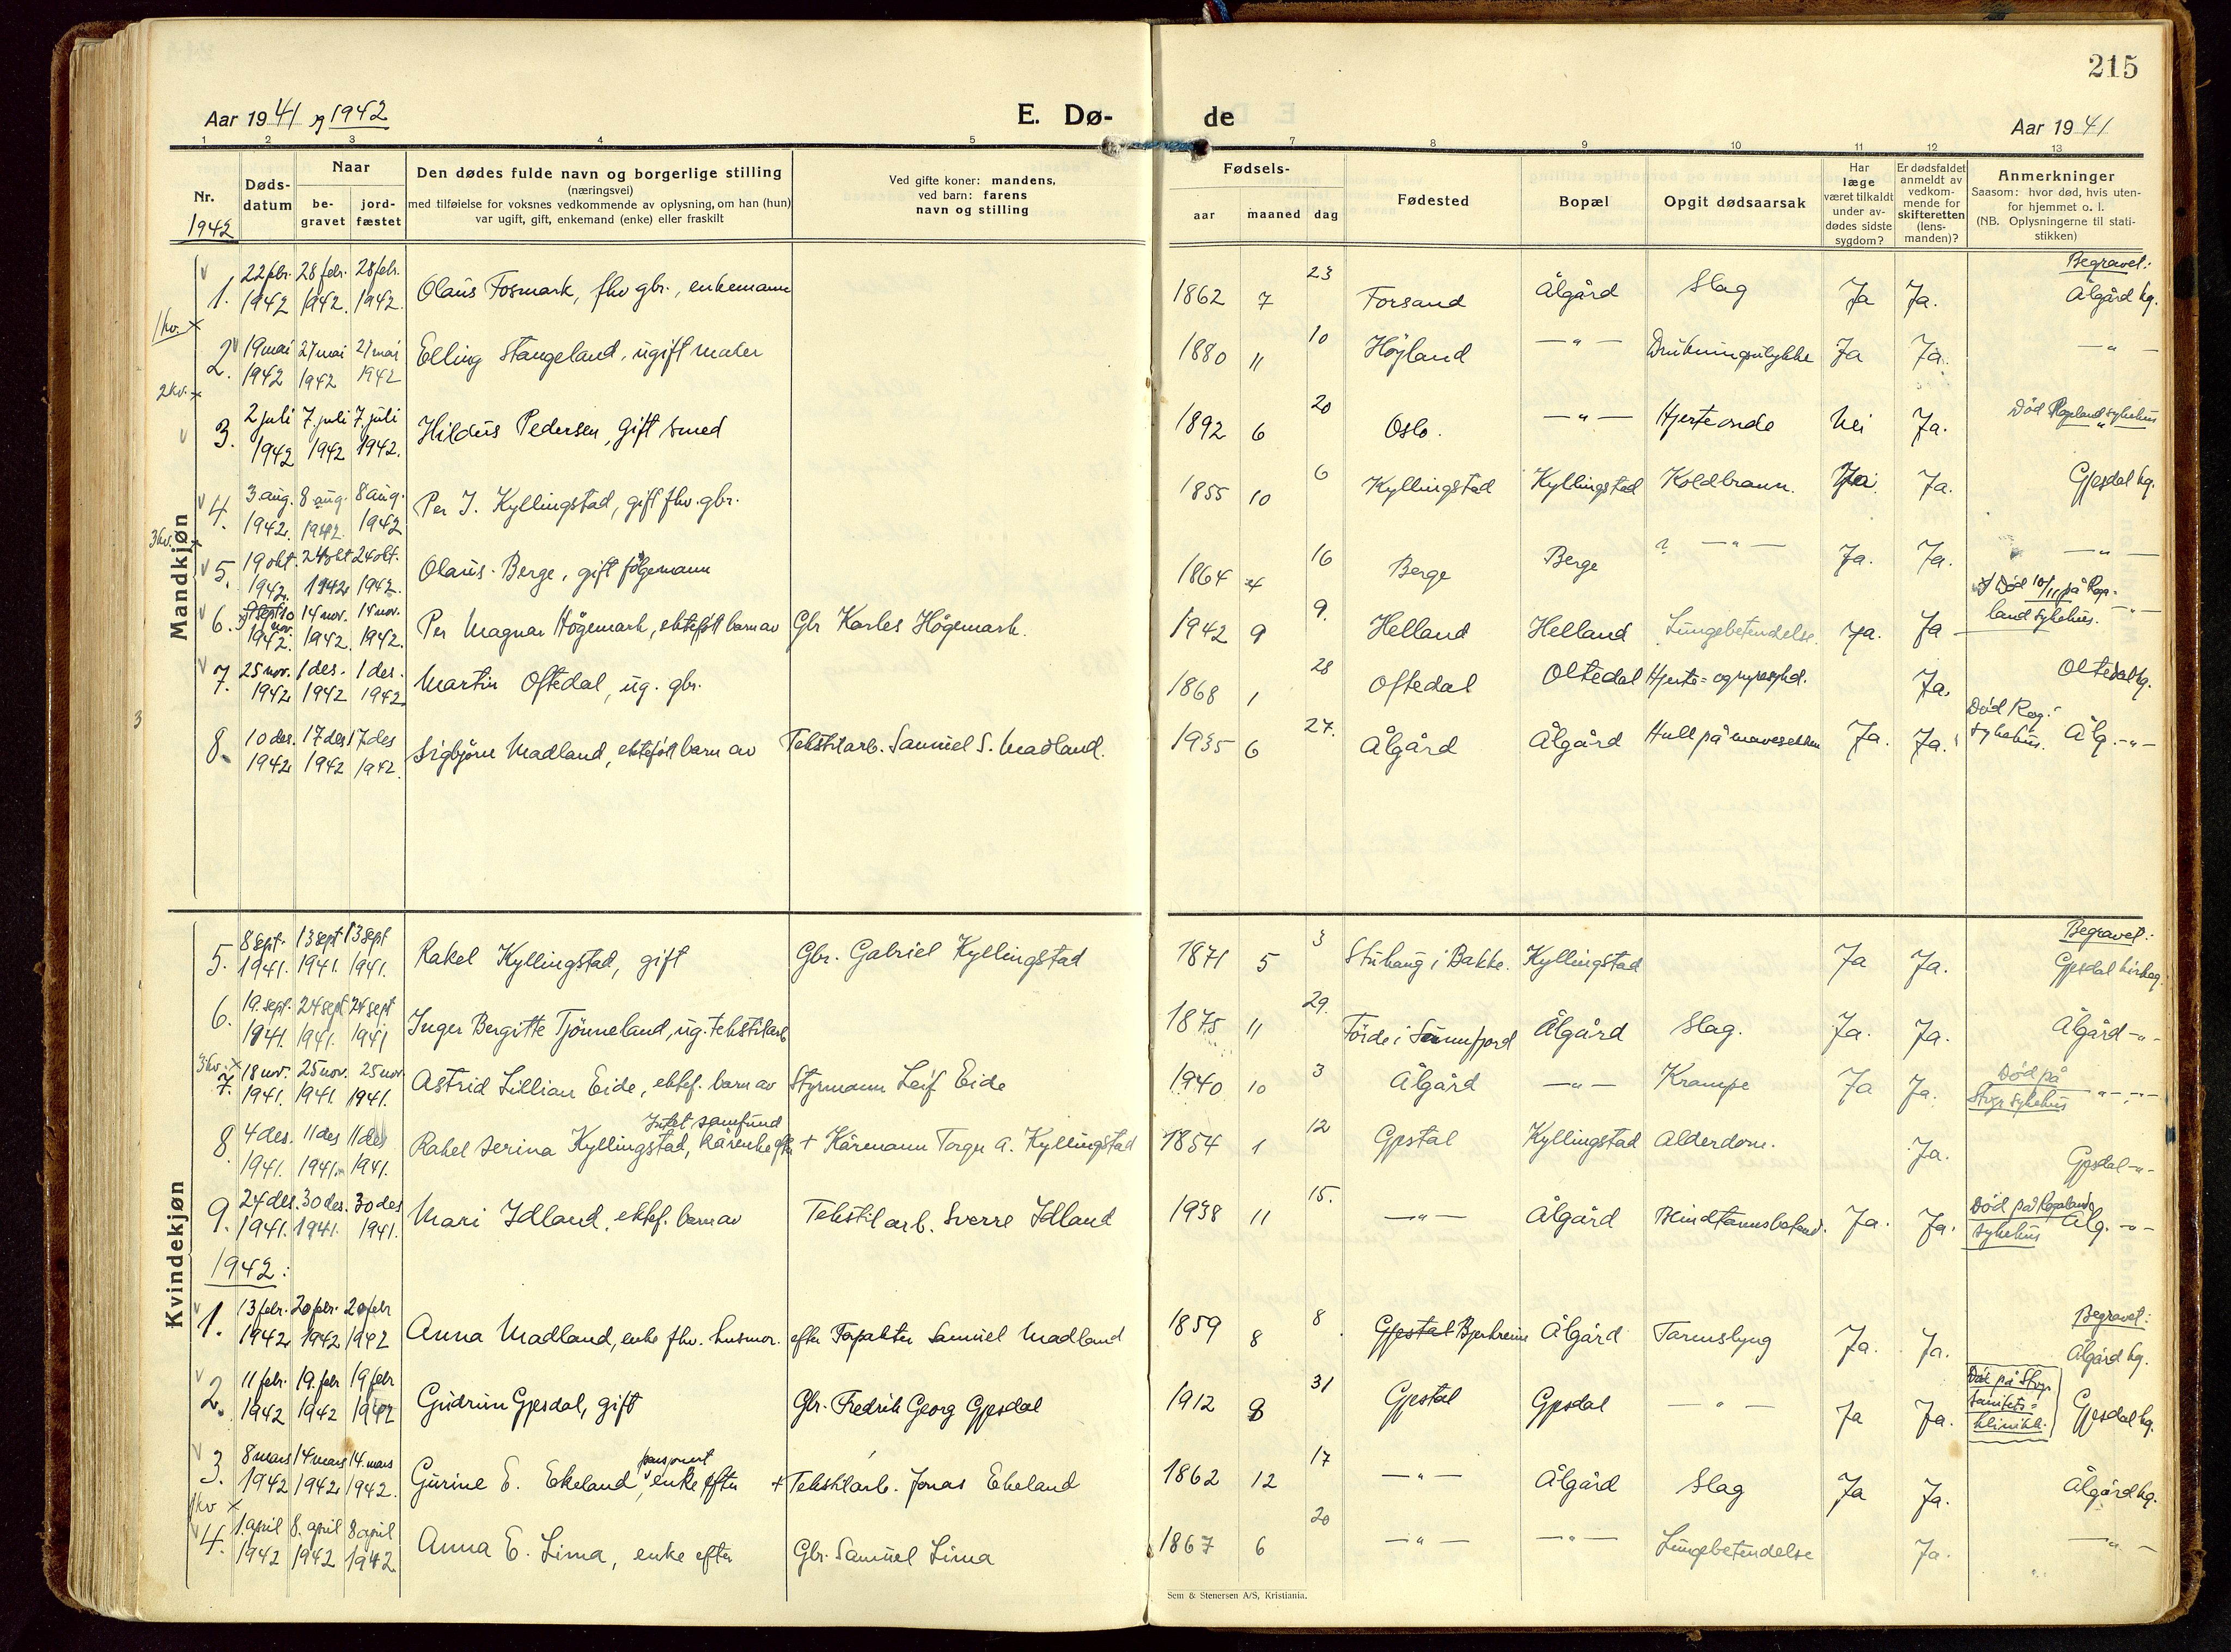 215
Aar 1941 og 1942
E. Dø-
de
Aar 1941
1 2 3 4 5 7 8 9 10 11 12 13
Nr.
1942
Døds-
datum
Naar
be-
gravet
jord-
fæstet
Den dødes fulde navn og borgerlige stilling
(næringsvei)
med tilføielse for voksnes vedkommende av oplysning, om han (hun)
var ugift, gift, enkemand (enke) eller fraskilt
Ved gifte koner: mandens,
ved barn: farens
navn og stilling
Fødsels-
aar maaned dag
Fødested
Bopæl
Opgit dødsaarsak
Har
læge
været tilkaldt
under av-
dødes sidste
sygdom?
Er dødsfaldet
anmeldt av
vedkom-
mende for
skifteretten
(lens-
manden)?
Anmerkninger
Saasom: hvor død, hvis uten-
for hjemmet o. l.
(NB. Oplysningerne til stati-
stikken)
Mandkjøn
Begravet:
1. 22 febr. 1942 28 febr. 1942. 28 febr. 1942. Olaus Fosmark, fhv gbr., enkemann 1862 7 23 Forsand Ålgård Slag Ja Ja. Ålgård kg.
1 kv. x
2. 19 mai 1942 27 mai 1942 27 mai 1942 Elling Stangeland, ugift maler 1880 11 10 Høyland -"- Drukningsulykke Ja Ja. -"-
2 kv. x
3. 2 juli 1942 7. juli 1942 7. juli 1942. Hildus Pedersen, gift smed 1892 6 20 Oslo. -"- Hjerteonde Nei Ja. Død Rogaland sykehus "
4. 3 aug. 1942. 8 aug. 1942. 8 aug. 1942 Per J. Kyllingstad, gift fhv. gbr. 1855 10 6 Kyllingstad Kyllingstad Koldbrann. Ja. Ja. Gjesdal kg.
3 kv. x
5. 19 okt. 1942. 24 okt 1942 24 okt. 1942. Olaus Berge, gift følgemann 1864 4 16 Berge Berge ? -"- Ja. Ja. -"-
6. 10 nov. 1942. 14 nov. 1942. 14 nov. 1942. Per Magnar Høgemark, ektefött barn av Gbr Karles Høgemark. 1942 9 9. Helland Helland Lungebetendelse. Ja. Ja Død 10/11 på Rogaland sykehus. -"-
7. 25 nov. 1942 1 des. 1942 1 des. 1942 Martin Oftedal, ug. gbr. 1868 1 28 Oftedal Oltedal Hjerte= og nyresykd. Ja. Oltedal kg.
3
8. 10 des. 1942 17 des 1942 17 des 1942. Sigbjörn Madland, ektefött barn av Tekstilarb. Samuel S. Madland. 1935 6 27. Ålgård Ålgård Hull på mavesekken Ja. Ja. Død Rog. sykehus. Ålg. -"-
Kvindekjøn
Begravet:
5. 8 sept. 1941. 13 sept 1941. 13 sept 1941. Rakel Kyllingstad, gift Gbr. Gabriel Kyllingstad 1871 5 3 Stuhaug i Bakke. Kyllingstad Ja Ja. Gjesdal kirkeg.
6. 19. sept. 1941. 24 sept 1941. 24 sept 1941 Inger Bergitte Tjönneland, ug. tekstilarb 1875 11 29. Förde i Sunnfjord Ålgård Slag. Ja. Ja. Ålgård -"-
3 kv. x
7. 18 nov. 1941. 25 nov. 1941. 25 nov 1941. Astrid Lillian Eide, ektef. barn av Styrmann Leif Eide 1940 10 3 Ålgård -"- Krampe Ja Ja. Død på Stvgr sykehus -"-
8. 4 des. 1941. 11 des 1941. 11 des 1941. Rakel Serina Kyllingstad, kårenke efter Intet samfund + Kårmann Torger A. Kyllingstad 1854 1 12 Gjestal Kyllingstad Alderdom. Ja. Gjesdal -"-
9. 24 des. 1941. 30 des. 1941. 30 des 1941. Mari Idland, ektef. barn av Tekstilarb. Sverre Idland 1938 11 15. -"- Ålgård Blindtarmsbetend. Ja. Ja. Død på Rogaland sykehus Ålg. -"-
1942:
Begravet:
1. 13 febr. 1942 20 febr. 1942 20 febr 1942 Anna Madland, enke fhv. husmor. efter Forpakter Samuel Madland 1859 8 8 Gjestal Bjerkreim Ålgård Tarmslyng Ja. Ja. Ålgård kg.
2. 11 febr. 1942 19. febr 1942 19 febr 1942 Gudrun Gjesdal, gift Gbr. Fredrik Georg Gjesdal 1912 8 31 Gjestal Gjesdal -"- Ja Ja. Død på Stvgr. sanitets= klinikk. Gjesdal kg.
3. 8 mars 1942 14 mars 1942 14. mars 1942. Gurine E. Ekeland, pensjonert enke efter + Tekstilarb. Jonas Ekeland 1862 12 17 -"- Ålgård Slag Ja Ja. Ålgård kg.
1 kv x
4. 1. april 1942 8. april 1942 8 april 1942 Anna E. Lima, enke efter Gbr. Samuel Lima 1867 6 20 -"- -"- Lungebetendelse Ja. -"-
Sem & Stenersen A/S, Kristiania.